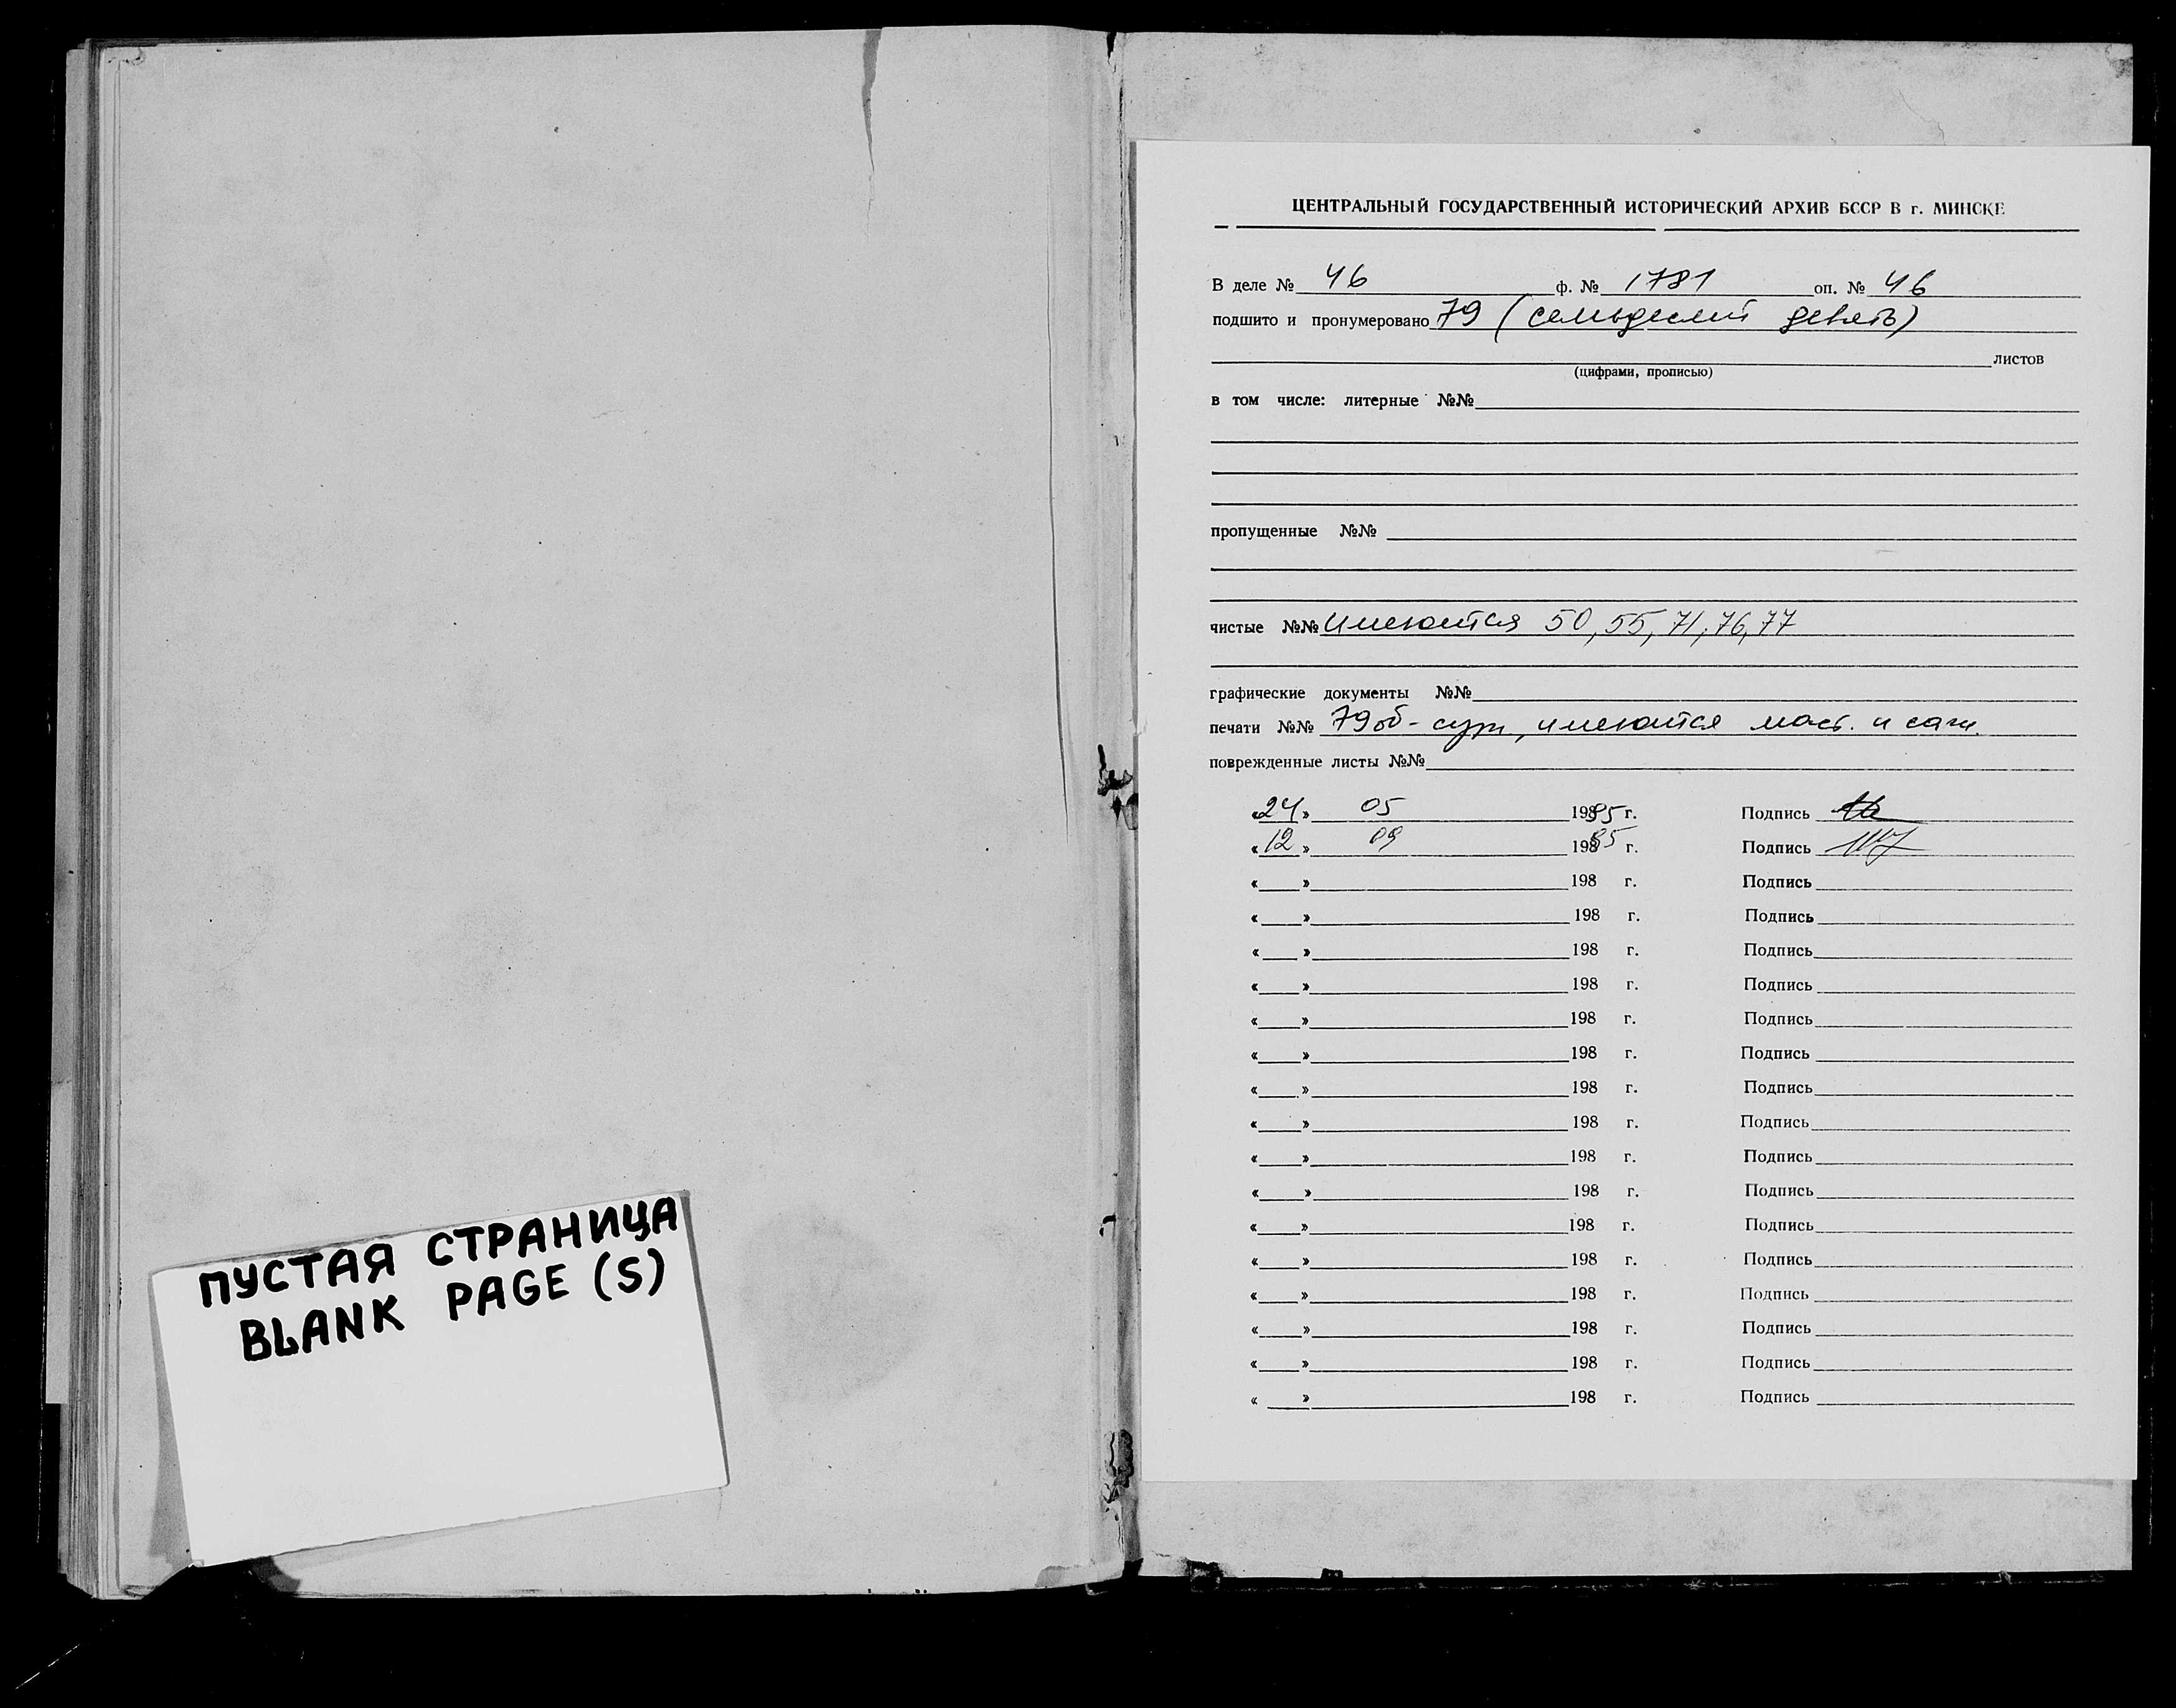 ПУСТАЯ СТРАНИЦА
BLANK PAGE (S)
ЦЕНТРАЛЬНЫЙ ГОСУДАРСТВЕННЫЙ ИСТОРИЧЕСКИЙ АРХИВ БССР В г. МИНСКЕ
В деле № 46 ф. № 1781 оп. № 46
подшито и пронумеровано 79 (семьдесят девять)
листов
(цифрами, прописью)
в том числе: литерные №№
пропущенные №№
чистые №№ имеются 50, 55, 71, 76, 77
графические документы №№
печати №№ 79об - сург, имеются маст. и
поврежденные листы №№
«24» 05 1985 г. Подпись
«12» 09 1985 г. Подпись
« » 198 г. Подпись
« » 198 г. Подпись
« » 198 г. Подпись
« » 198 г. Подпись
« » 198 г. Подпись
« » 198 г. Подпись
« » 198 г. Подпись
« » 198 г. Подпись
« » 198 г. Подпись
« » 198 г. Подпись
« » 198 г. Подпись
« » 198 г. Подпись
« » 198 г. Подпись
« » 198 г. Подпись
« » 198 г. Подпись
« » 198 г. Подпись